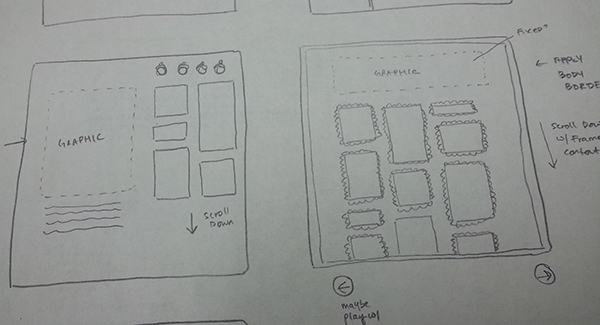 GRAPHIC
SCROLL
DOWN
FIXED?
GRAPHIC
← APPLY
BODY
BORDER
SCROLL DOWN
W/ FRAME
CONTENT
maybe
play w/